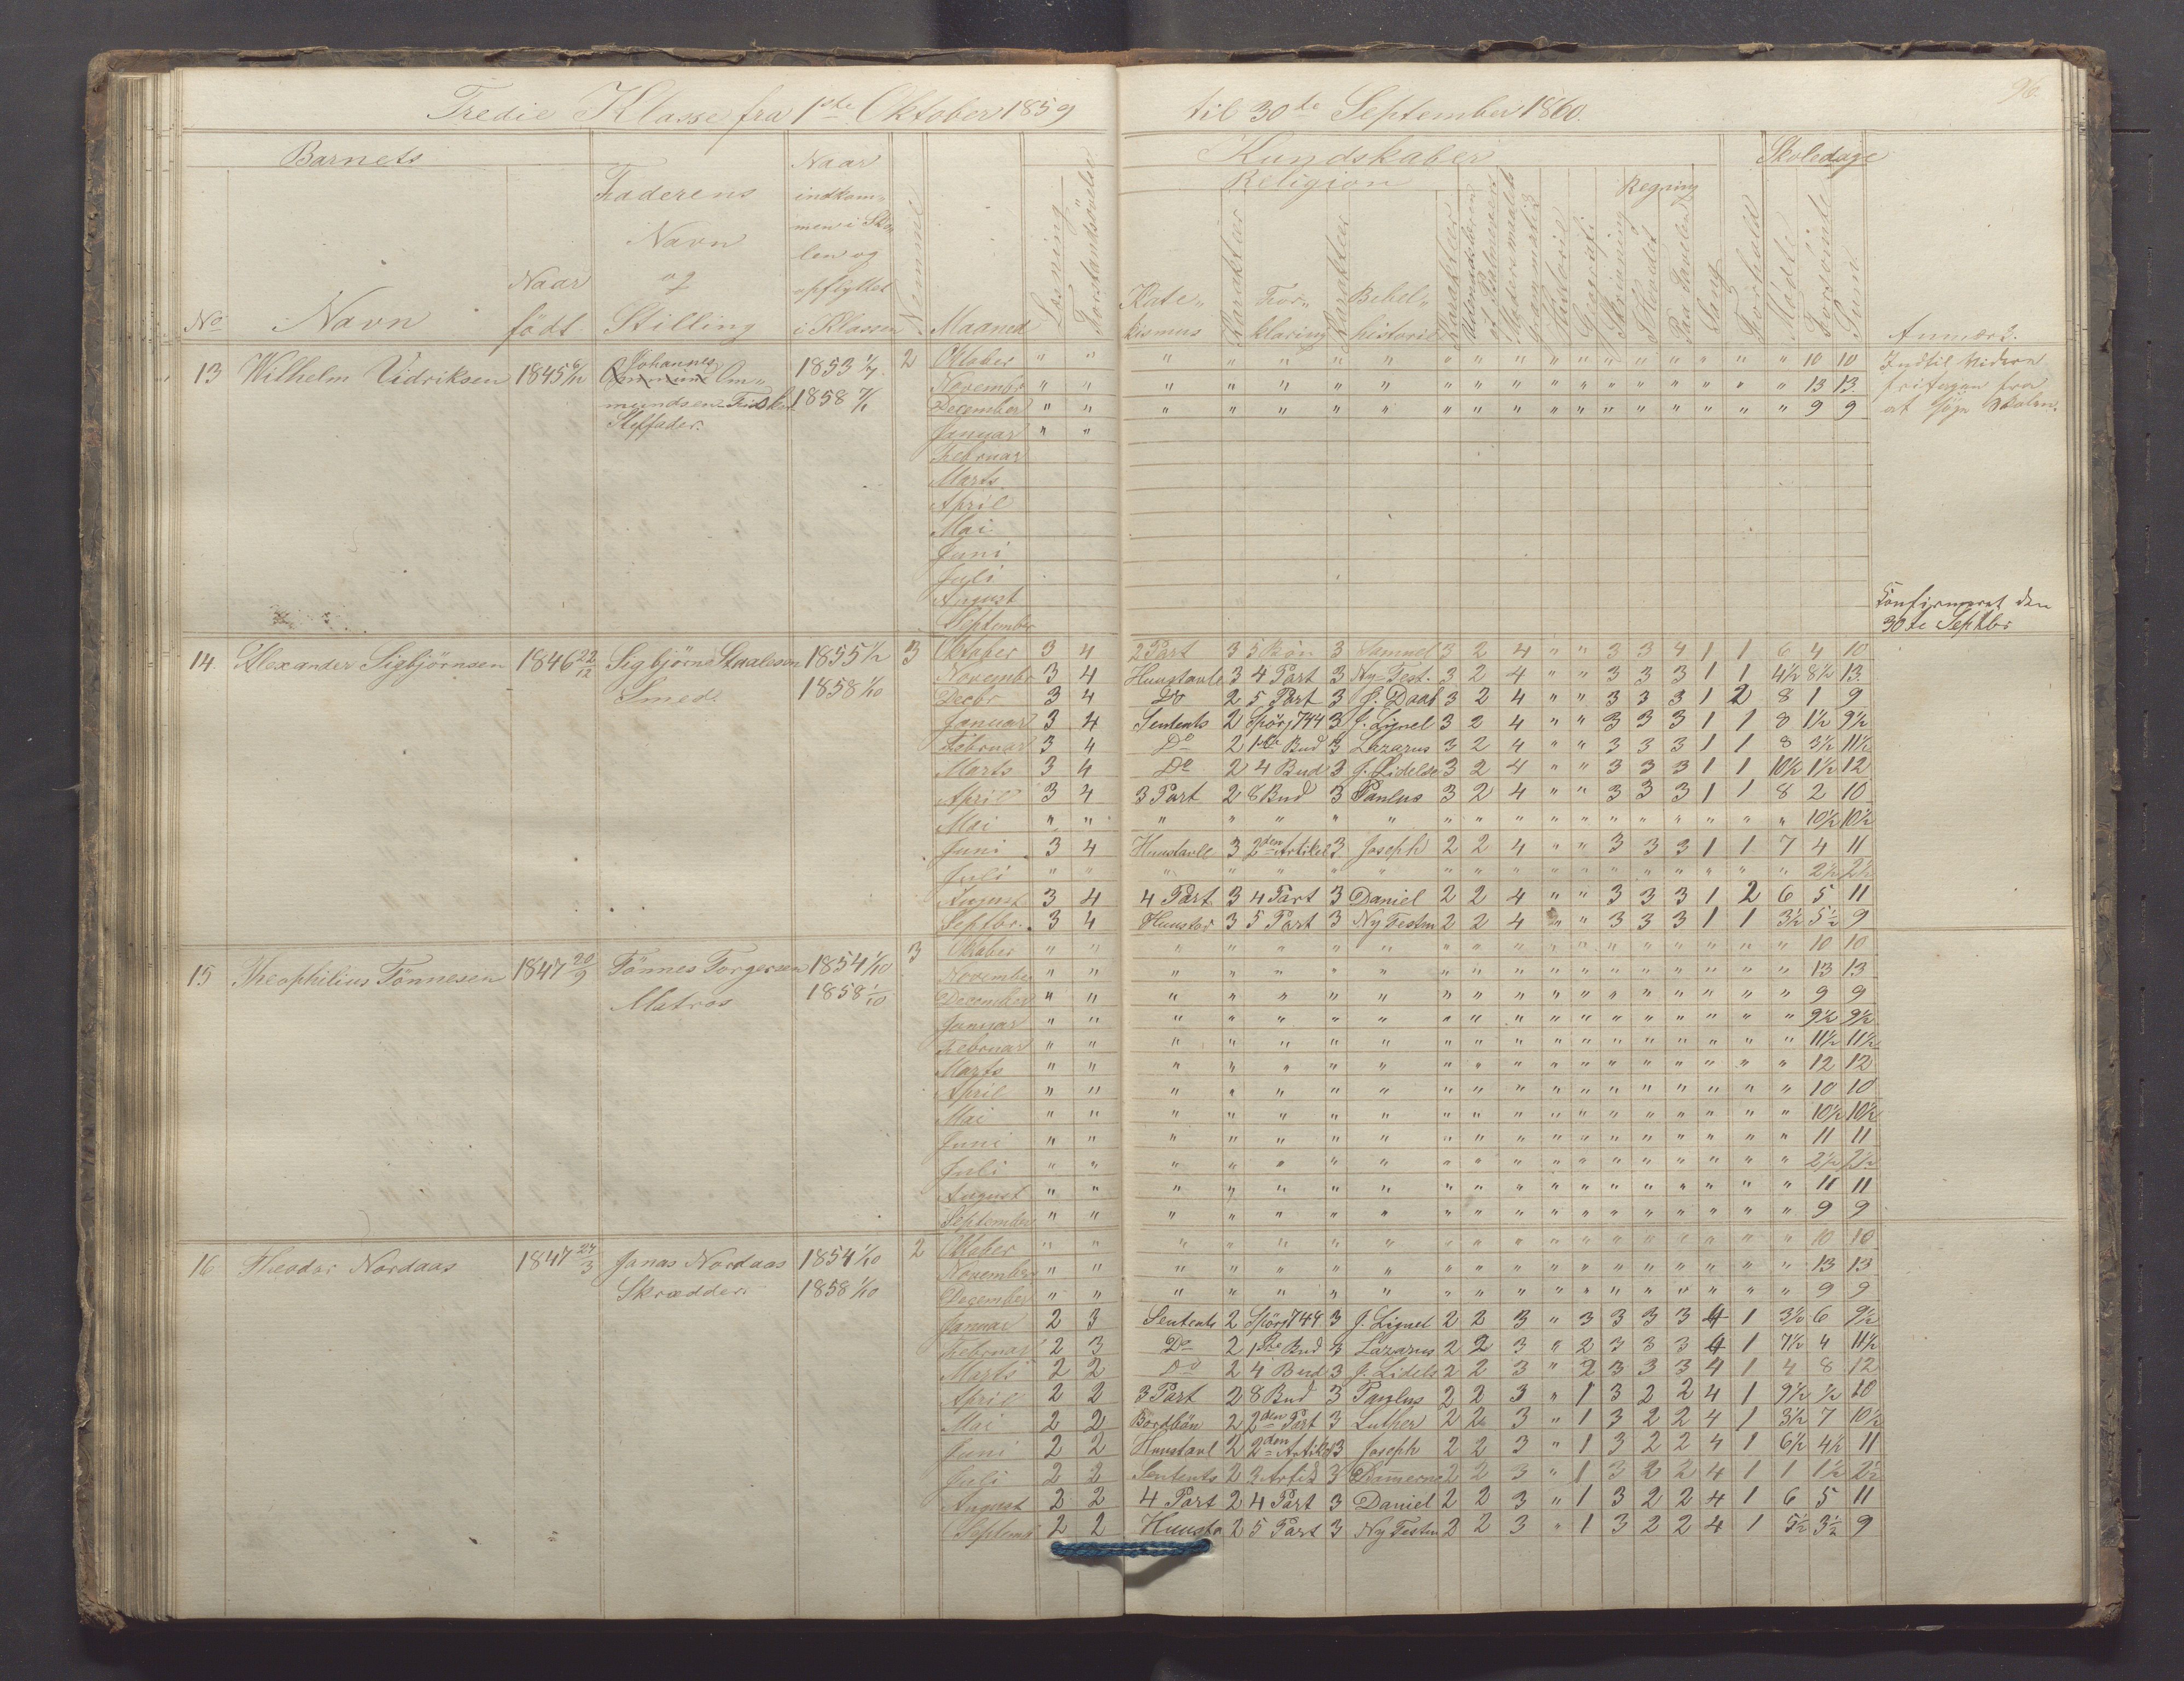 96.
Tredie Klasse fra 1ste Oktober 1859 til 30te September 1860.
Barnets
No
Navn
Naar født
Faderens Navn og Stilling
Naar indkommen i Skolen og opflyttet i Klassen
Nemme
Maaned
Læsning
Forstandsøvelse
Kundskaber
Religion
Katekismus
Karakter
Forklaring
Karakter
Bibelhistorie
Karakter
Modersmaal
Grammatik
Historie
Geografi
Skrivning
Regning
Hovedet
Paa Tavlen
Sang
Forhold
Skoledage
Mødte
Forsømte
Sum
Anmærk.
13 Wilhelm Vidriksen 1845 Johannes Ommundsen Fisker Stiffader. 1853 1/7. 1858 2
Oktober " " " " " " " " " " " " " " " " " " " 10 10
November " " " " " " " " " " " " " " " " " " " 13 13.
December " " " " " " " " " " " " " " " " " " " 9 9
Januar " "
Februar
Marts
April
Mai
Juni
Juli
August
September
Indtil Videre fritagen fra at søge Skolen.
Confirmeret den 30te Septbr
14. Alexander Sigbjørnsen 1846 22/12 Sigbjørn Staalesen Smed. 1855 1/2 1858 1/10 3
Oktober 3 4 2 Part 3 5 Bøn 3 Samuel 3 2 4 " " 3 3 4 1 1 6 4 10
Novembr 3 4 Huustavle 3 4 Part 3 Ny Test. 3 2 4 " " 3 3 3 1 1 4½ 8½ 13.
Decbr 3 4 Do 2 5 Part 3 J. Daab 3 2 4 " " 3 3 3 1 2 8 1 9
Januar 3 4 Sentents 2 Spörj 744 3 J. Lignel 3 2 4 " " 3 3 3 1 1 8 1½ 9½
Februar 3 4 Do 2 1ste Bud 3 Lazarus 3 2 4 " " 3 3 3 1 1 8 3½ 11½
Marts 3 4 Do 2 4 Bud 3 J. Lidelse 3 2 4 " " 3 3 3 1 1 10½ 1½ 12
April 3 4 3 Part 2 8 Bud 3 Paulus 3 2 4 " " 3 3 3 1 1 8 2 10
Mai " " " " " " " " " " " " " " " " " " " 10½ 10½
Juni 3 4 Huustavle 3 2den Artikel 3 Joseph 2 2 4 " " 3 3 3 1 1 7 4 11
Juli " " " " " " " " " " " " " " " " " " " 2½ 2½
August 3 4 4 Part 3 4 Part 3 Daniel 2 2 4 " " 3 3 3 1 2 6 5 11
Septbr. 3 4 Huustav 3 5 Part 3 Ny Testm 2 2 4 " " 3 3 3 1 1 3½ 5½ 9
15 Theophilius Tönnesen 1847 20/9 Tönnes Torgersen Matros 1854 1/10 1858 1/10 3
Oktober " " " " " " " " " " " " " " " " " " " 10 10
November " " " " " " " " " " " " " " " " " " " 13 13
December " " " " " " " " " " " " " " " " " " " 9 9
Januar " " " " " " " " " " " " " " " " " " " 9½ 9½
Februar " " " " " " " " " " " " " " " " " " " 11½ 11½
Marts " " " " " " " " " " " " " " " " " " " 12 12
April " " " " " " " " " " " " " " " " " " " 10 10
Mai " " " " " " " " " " " " " " " " " " " 10½ 10½
Juni " " " " " " " " " " " " " " " " " " " 11 11
Juli " " " " " " " " " " " " " " " " " " " 2½ 2½
August " " " " " " " " " " " " " " " " " " " 11 11
September " " " " " " " " " " " " " " " " " " " 9 9
16 Theodor Nordaas 1847 24/3 Jonas Nordaas Skrædder 1854 1/10 1858 1/10 2
Oktober " " " " " " " " " " " " " " " " " " " 10 10
November " " " " " " " " " " " " " " " " " " " 13 13
December " " " " " " " " " " " " " " " " " " " 9 9
Januar 2 3 Sentents 2 Spörj 744 3 J. Lignel 2 2 3 " 3 3 3 3 4 1 3½ 6 9½
Februar 2 3 Do 2 1ste Bud 3 Lazarus 2 2 3 " 2 3 3 3 4 1 7½ 4 11½
Marts 2 2 Do 2 4 Bud 3 J. Lidels 2 2 3 " 2 3 3 3 4 1 4 8 12
April 2 2 3 Part 2 8 Bud 3 Paulus 2 2 3 " 1 3 2 2 4 1 9½ ½ 10
Mai 2 2 Bordbön 2 2den Part 3 Luther 2 2 3 " 1 3 2 2 4 1 3½ 7 10½
Juni 2 2 Huustavl 2 2den Artikel 3 Joseph 2 2 3 " 1 3 2 2 4 1 6½ 4½ 11
Juli 2 2 Sentents 2 3 Artik 3 2 2 3 " 1 3 2 2 4 1 1 1½ 2½
August 2 2 4 Part 2 4 Part 3 Daniel 2 2 3 " 1 3 2 2 4 1 6 5 11
Septemb 2 2 Huusta 2 5 Part 3 Ny Testm 2 2 3 " 1 3 2 2 4 1 5½ 3½ 9